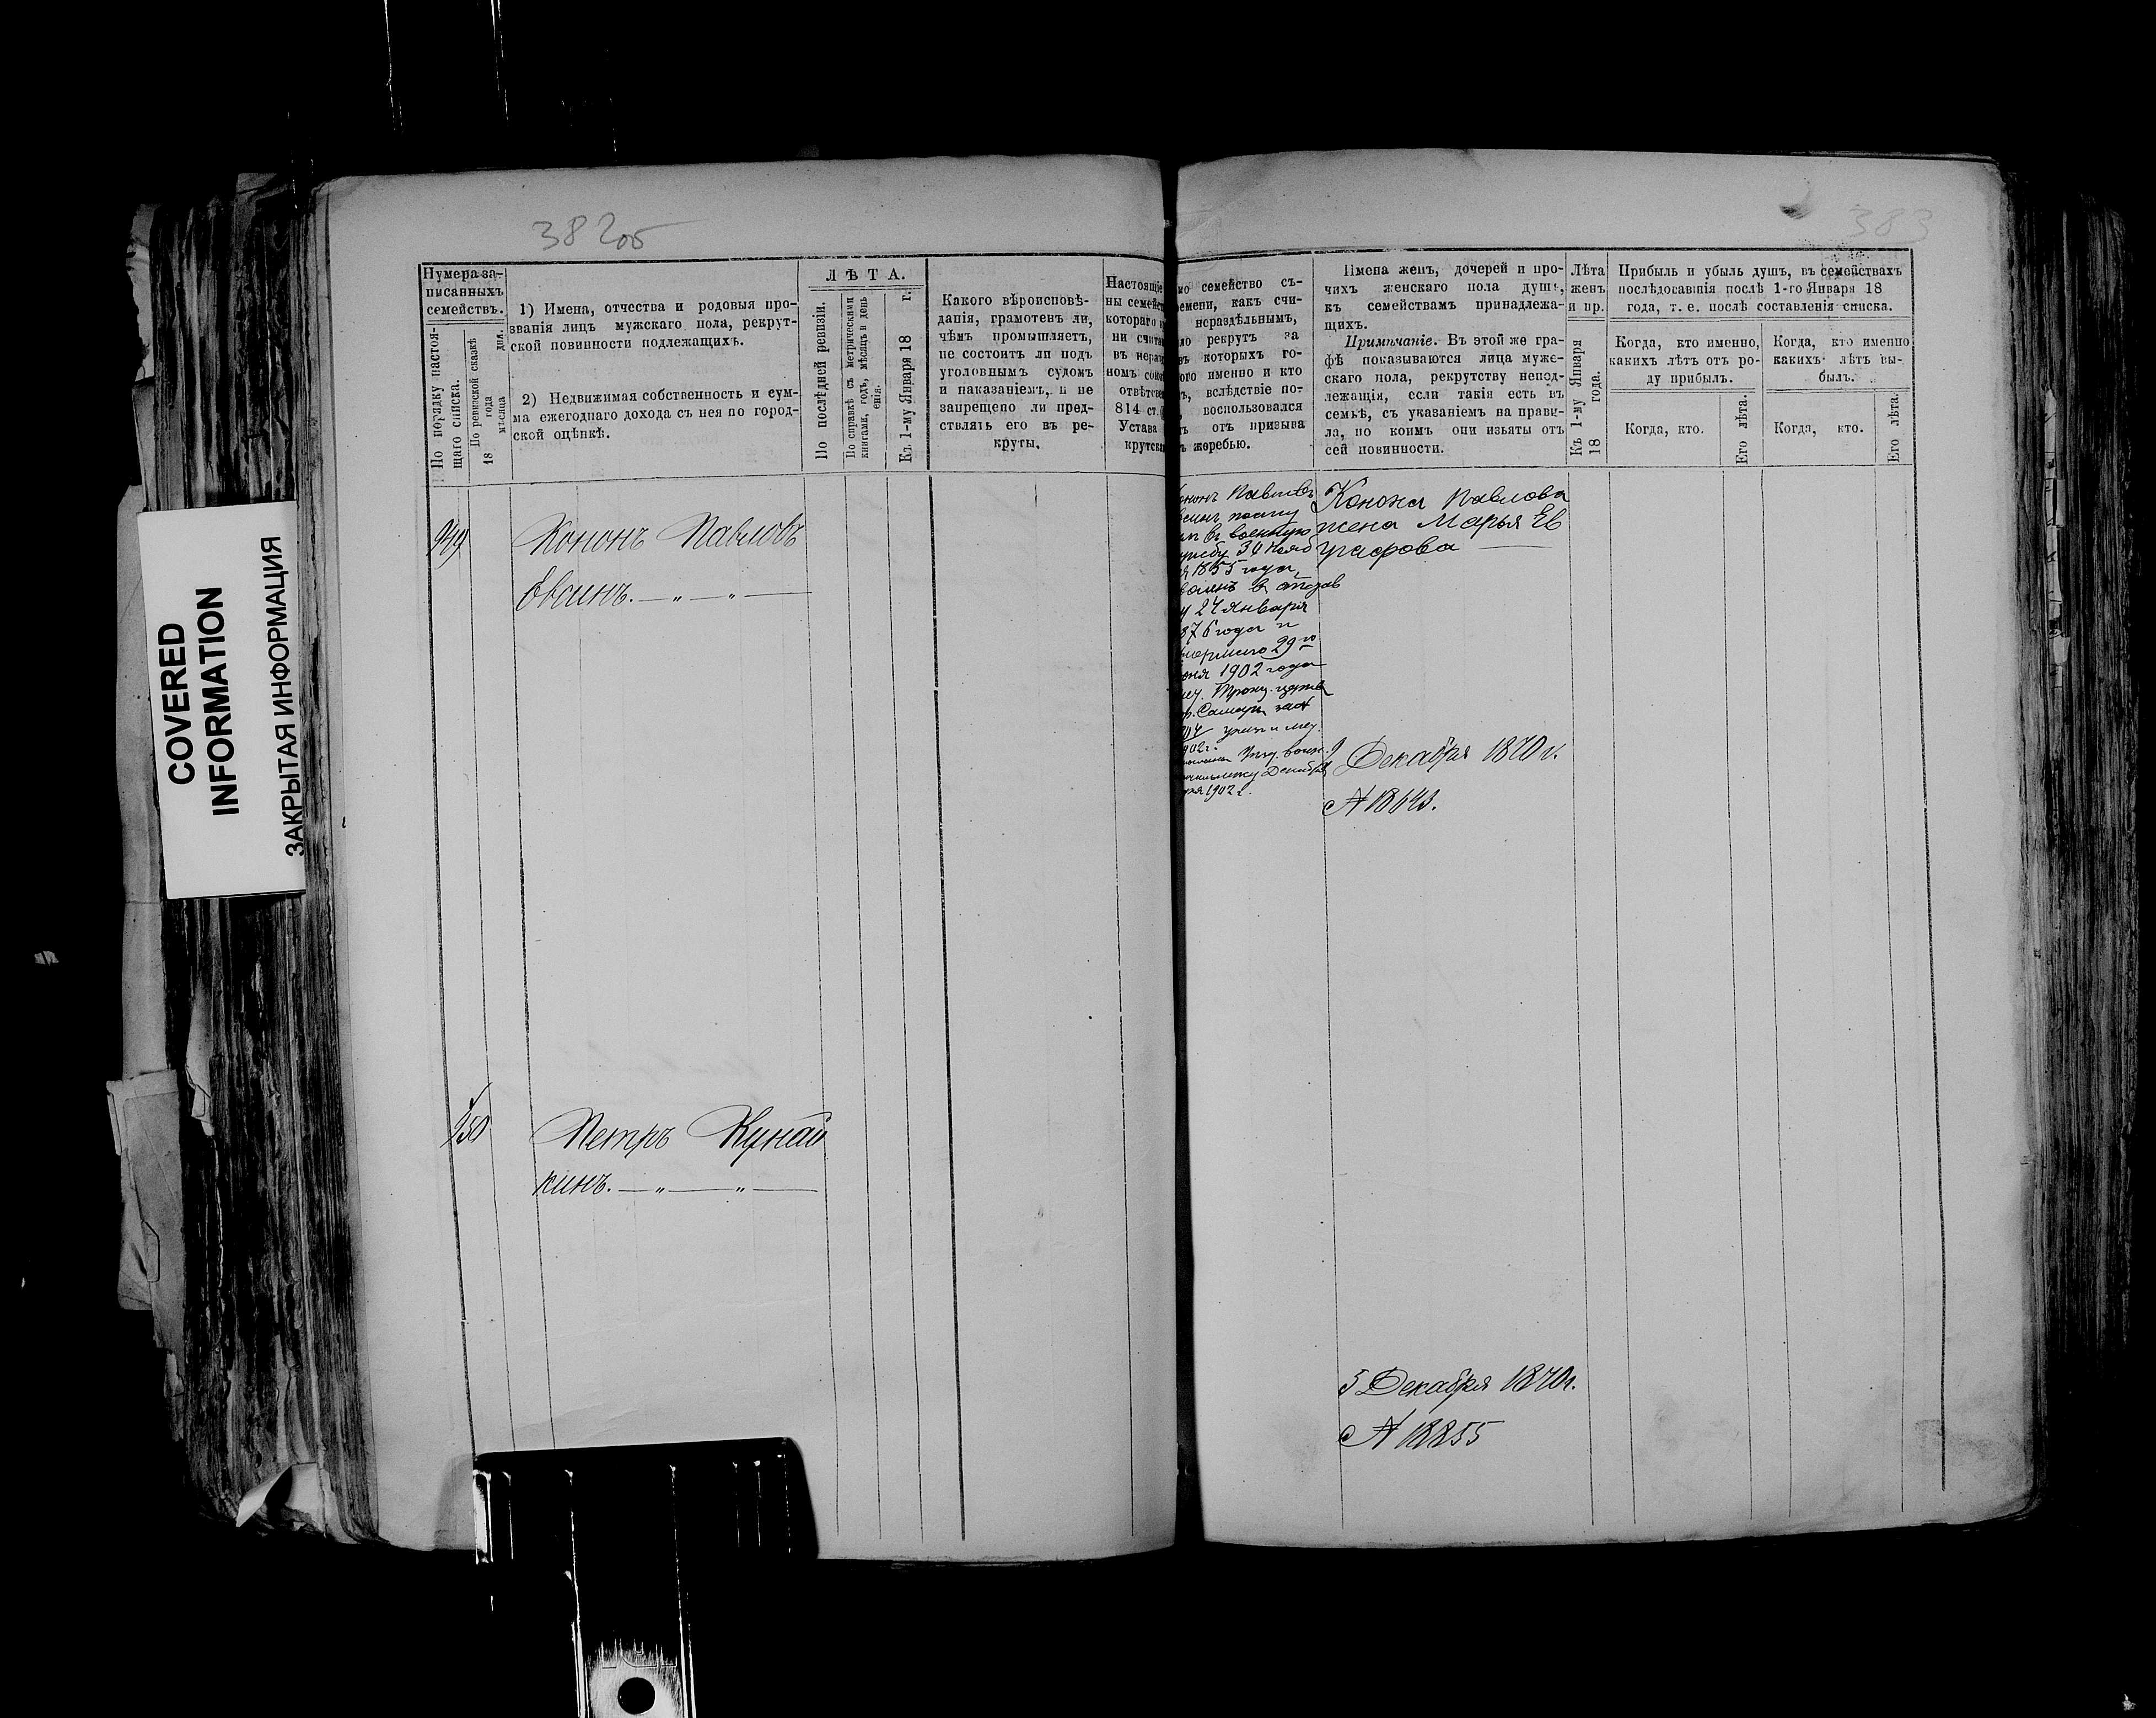 382об
383
COVERED
INFORMATION
ЗАКРЫТАЯ ИНФОРМАЦИЯ
Нумера за-
писанныхъ
семействъ.
По порядку настоя-
щаго списка.
По ревизской сказкѣ
18 года
мѣсяца дня.
1) Имена, отчества и родовыя про-
званія лицъ мужскаго пола, рекрут-
ской повинности подлежащихъ.
2) Недвижимая собственность и сум-
ма ежегоднаго дохода съ нея по город-
ской оцѣнкѣ.
ЛѢТА.
По послѣдней ревизіи.
По справкѣ съ метрическими
книгами, годъ, мѣсяцъ и день
Къ 1-му Января 18 г.
Какого вѣроисповѣ-
данія, грамотенъ ли,
чѣмъ промышляетъ,
не состоитъ ли подъ
уголовнымъ судомъ
и наказаніемъ, и не
запрещено ли пред-
ствлять его въ ре-
круты.
Настоящіе
ны семейс
котораго
ни считаю
въ нераз
номъ союз
отвѣтстве
814 ст.
Устава
крутска
мо семейство съ-
ремени, какъ счи-
нераздѣльнымъ,
ло рекрутъ за
въ которыхъ го-
ого именно и кто
ъ, вслѣдствіе по-
воспользовался
ъ отъ призыва
ъ жеребью.
Имена женъ, дочерей и про-
чихъ женскаго пола душъ,
къ семействамъ принадлежа-
щихъ.
Примѣчаніе. Въ этой же гра-
фѣ показываются лица муже-
скаго пола, рекрутству непод-
лежащія, если такія есть въ
семьѣ, съ указаніемъ на прави-
ла, по коимъ они изъяты отъ
сей повинности.
Лѣта
женъ
и пр.
Къ 1-му Января
18 года.
Прибыль и убыль душъ, въ семействахъ
послѣдовавшія послѣ 1-го Января 18
года, т. е. послѣ составленія списка.
Когда, кто именно,
какихъ лѣтъ отъ ро-
ду прибылъ.
Когда, кто именно
какихъ лѣтъ вы-
былъ.
Когда, кто.
Его лѣта.
Когда, кто.
Его лѣта.
949
Кононъ Павловъ
Евсинъ. — „ — „ —
ононъ Павловъ
военную
1855 года,
24 Января
876 года и
умершимъ 29-го
1902 года
902 г.
1902 г.
Конона Павлова
жена Марья Ев
графова —
9 Декабря 1870 г.
950
Петръ Кунай
кинъ. — „ — „ —
5 Декабря 1870 г.
№ 18855